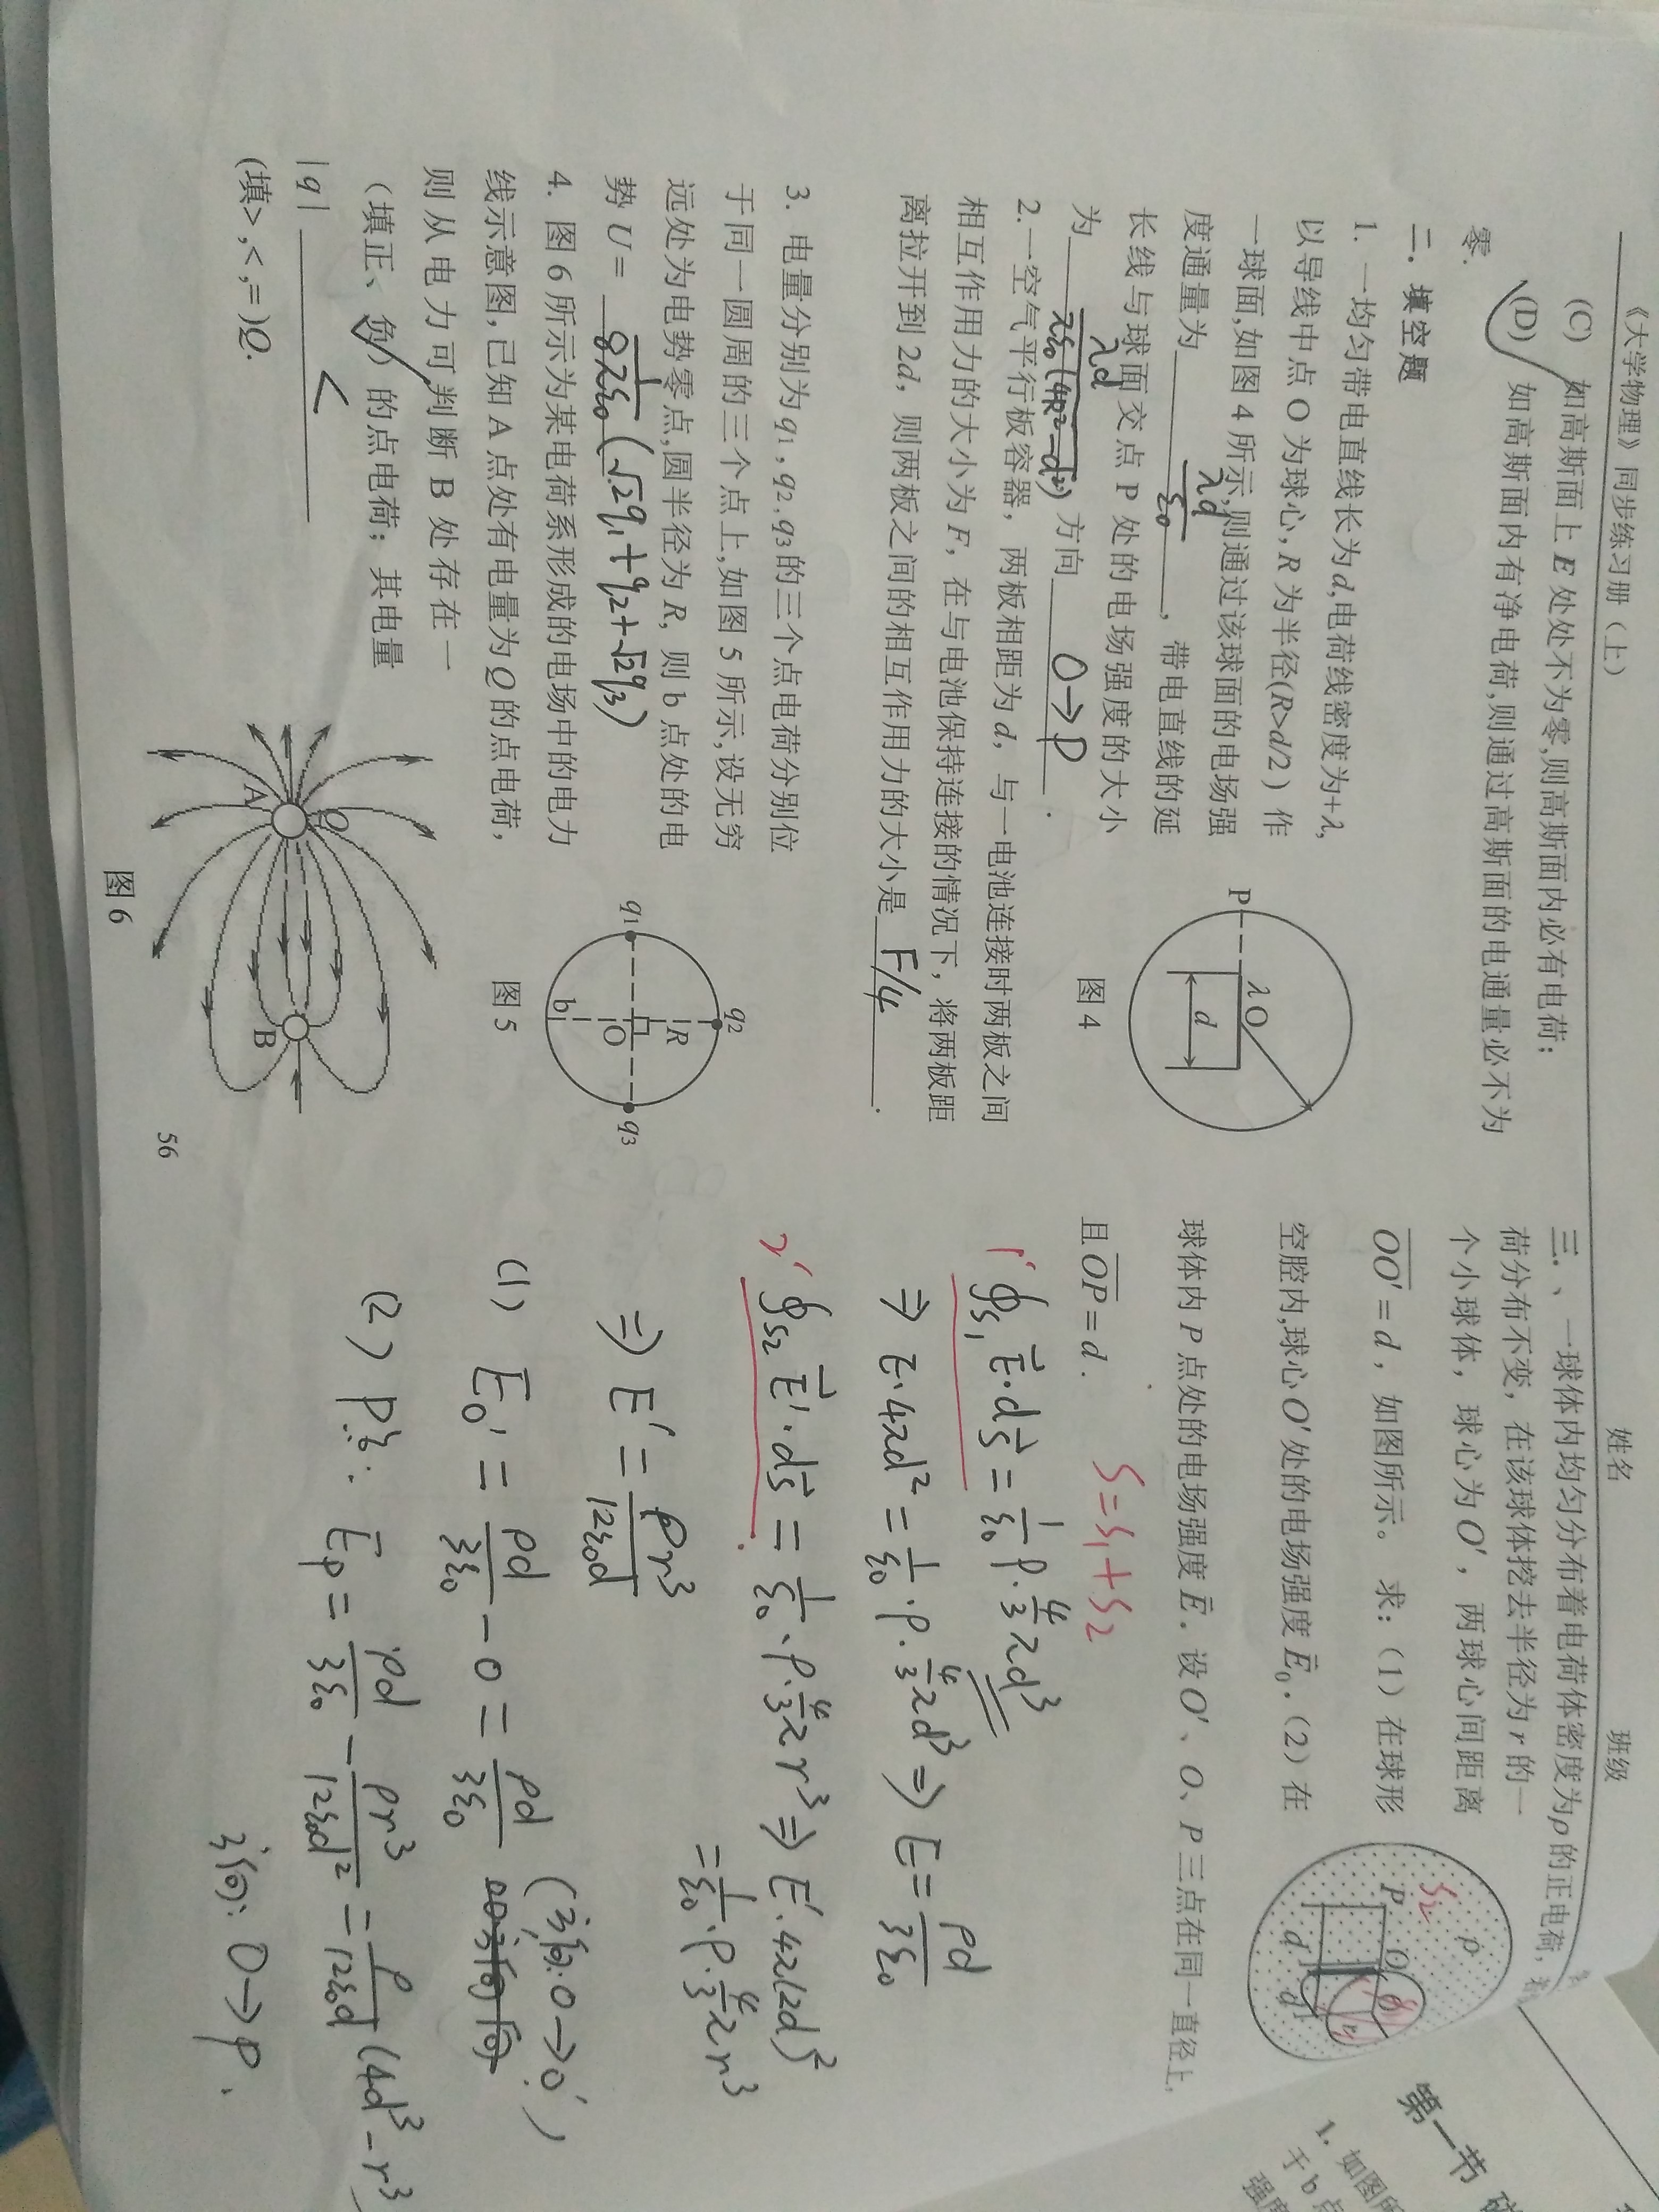 《大学物理》同步练习册（上）
姓名
班级
(C) 如高斯面上 E 处处不为零,则高斯面内必有电荷；
(D) 如高斯面内有净电荷,则通过高斯面的电通量必不为
零.
二. 填空题
1. 一均匀带电直线长为 d,电荷线密度为+λ,
以导线中点 O 为球心, R 为半径(R>d/2) 作
一球面,如图 4 所示,则通过该球面的电场强
度通量为 λd/ε0 ，带电直线的延
长线与球面交点 P 处的电场强度的大小
为 λd/πε0(4R²-d²) 方向 O→P .
P
λ O
d
图 4
2. 一空气平行板容器，两板相距为 d，与一电池连接时两板之间
相互作用力的大小为 F，在与电池保持连接的情况下，将两板距
离拉开到 2d，则两板之间的相互作用力的大小是 F/4 .
3. 电量分别为 q1, q2. q3 的三个点电荷分别位
于同一圆周的三个点上,如图 5 所示,设无穷
远处为电势零点,圆半径为 R，则 b 点处的电
势 U= 1/8πε0 (√2q1+q2+√2q3)
q1
q2
q3
R
O
b
图 5
4. 图 6 所示为某电荷系形成的电场中的电力
线示意图,已知 A 点处有电量为 Q 的点电荷,
则从电力可判断 B 处存在一
（填正、负）的点电荷；其电量
|q| <
(填>,<,=)Q.
A
Q
B
图 6
56
三.、一球体内均匀分布着电荷体密度为ρ的正电荷,
荷分布不变，在该球体挖去半径为 r 的一
个小球体，球心为 O′，两球心间距离
OO′ = d，如图所示。 求：（1）在球形
空腔内,球心 O′处的电场强度 E0.（2）在
球体内 P 点处的电场强度 E. 设 O′、O、P 三点在同一直径上,
且 OP = d.
S2
ρ
P
O
r
d
d
S=S1+S2
1′ ∮S1 E·dS = 1/ε0 ρ·4/3πd³
⇒ E·4πd² = 1/ε0·ρ·4/3πd³ ⇒ E = ρd/3ε0
2′ ∮S2 E′·dS = 1/ε0·ρ·4/3πr³ ⇒ E′·4π(2d)²
= 1/ε0·ρ·4/3πr³
⇒ E′ = ρr³/12ε0d
(1) E0′ = ρd/3ε0 - 0 = ρd/3ε0 (方向:O→O′)
(2) P点: EP = ρd/3ε0 - ρr³/12ε0d² = ρ/12ε0d (4d³-r³
方向: O→P.
第一节
1. 如图所
于 b 点
强度